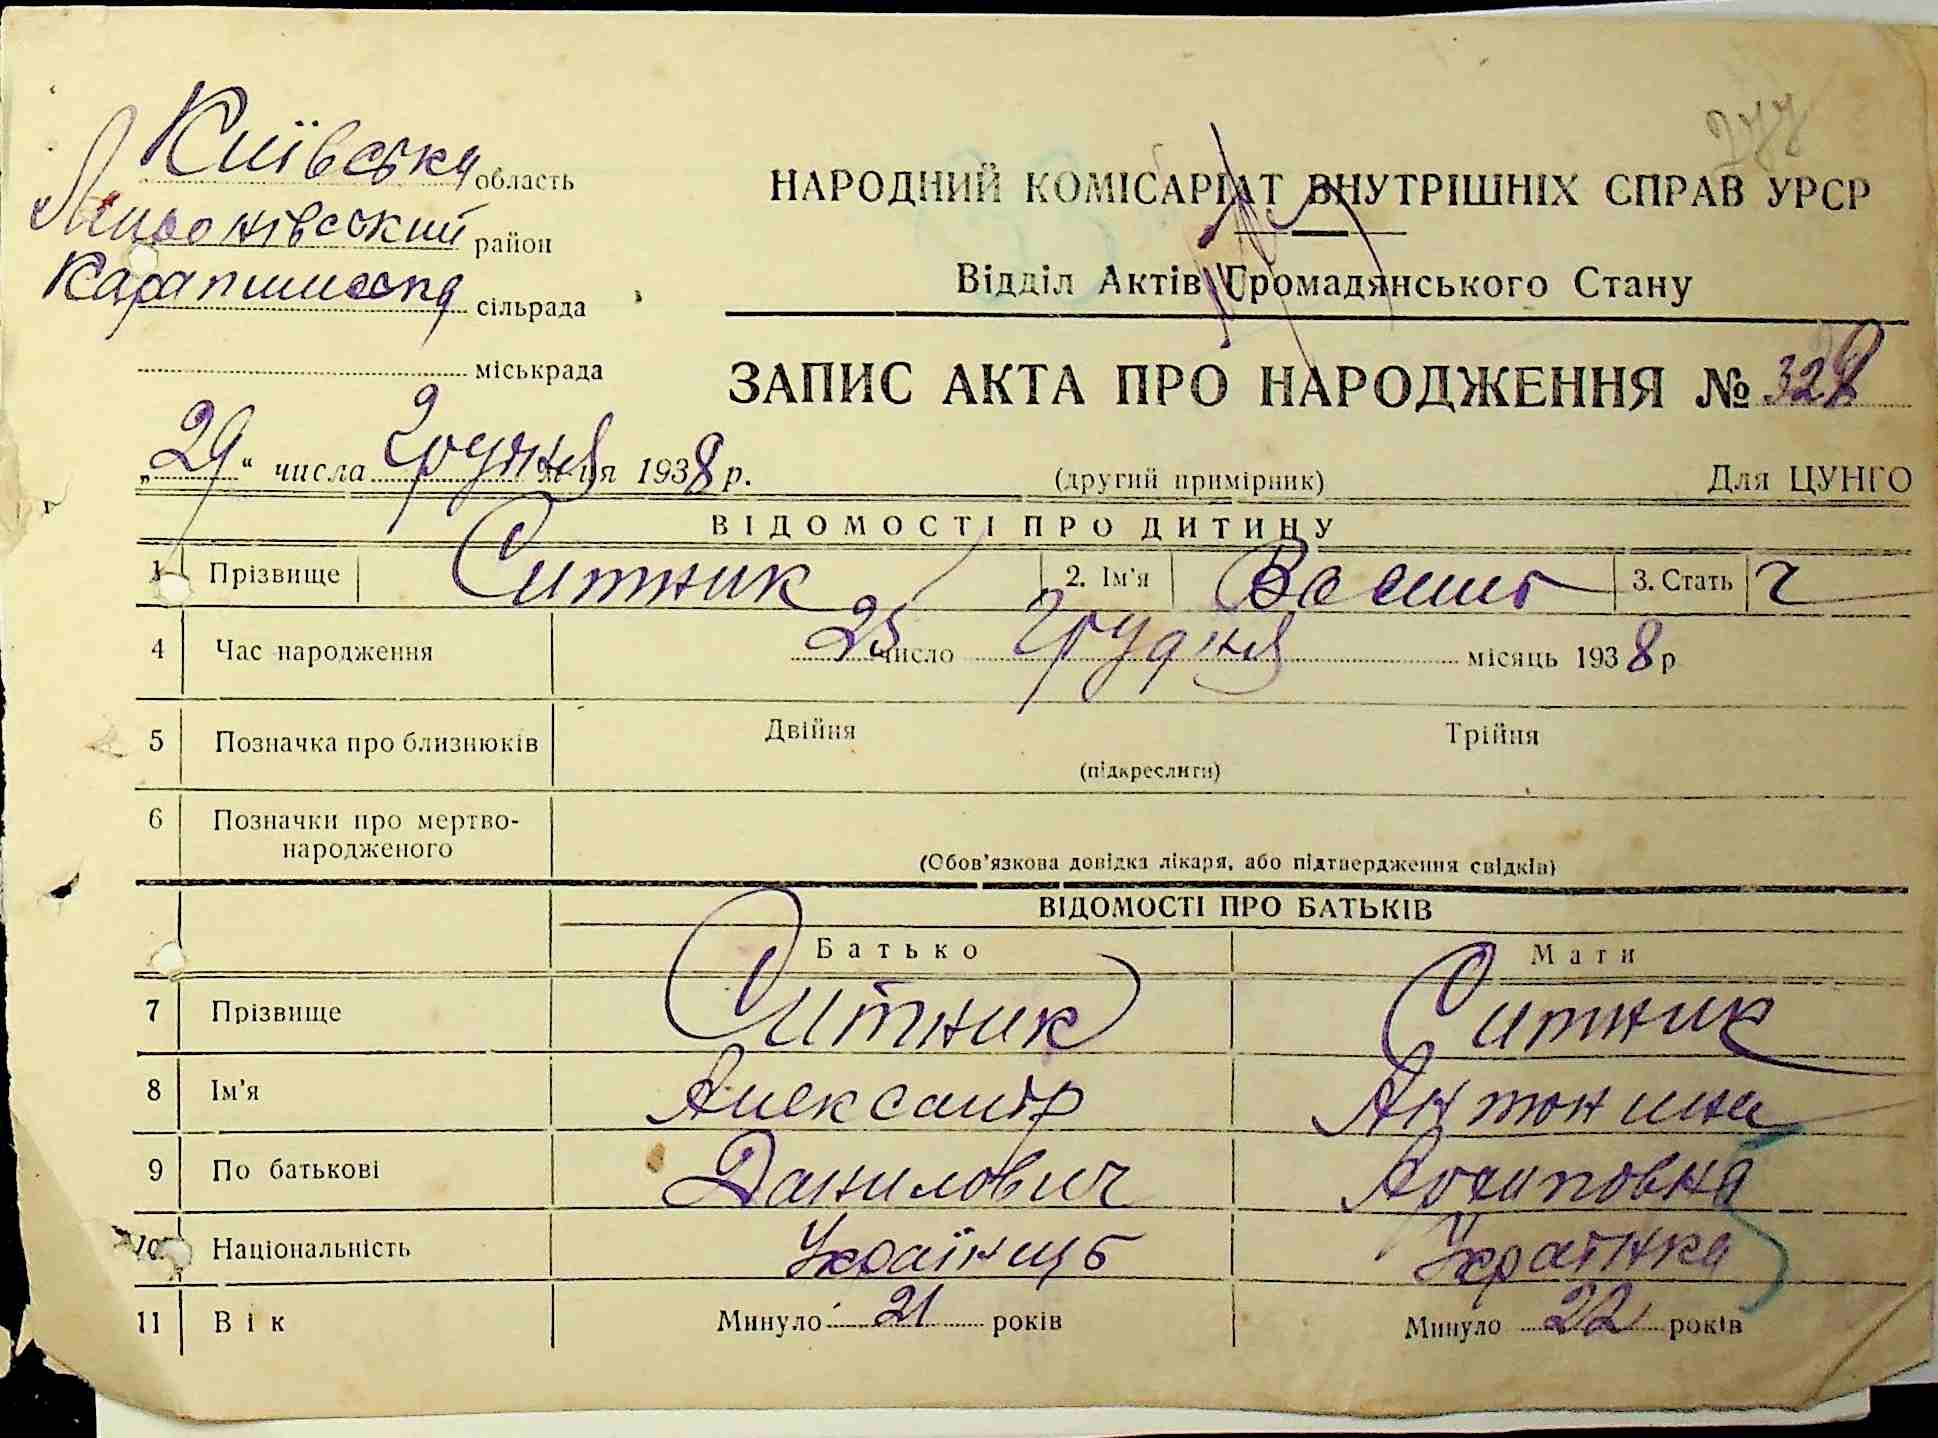 Київська область
Миронівський район
Карапишська сільрада
міськрада
277
НАРОДНИЙ КОМІСАРІАТ ВНУТРІШНІХ СПРАВ УРСР
Відділ Актів Громадянського Стану
ЗАПИС АКТА ПРО НАРОДЖЕННЯ № 328
„29“ числа Грудня м-ця 1938 р.
(другий примірник)
Для ЦУНГО
ВІДОМОСТІ ПРО ДИТИНУ
1 Прізвище Ситник 2. Ім'я Василь 3. Стать ч
4 Час народження 25 число Грудня місяць 1938 р
5 Позначка про близнюків Двійня Трійня
(підкреслити)
6 Позначки про мертво-
народженого
(Обов'язкова довідка лікаря, або підтвердження свідків)
ВІДОМОСТІ ПРО БАТЬКІВ
Батько Мати
7 Прізвище Ситник Ситник
8 Ім'я Александр Антонина
9 По батькові Данилович Архиповна
10 Національність Українець Українка
11 Вік Минуло 21 років Минуло 22 років